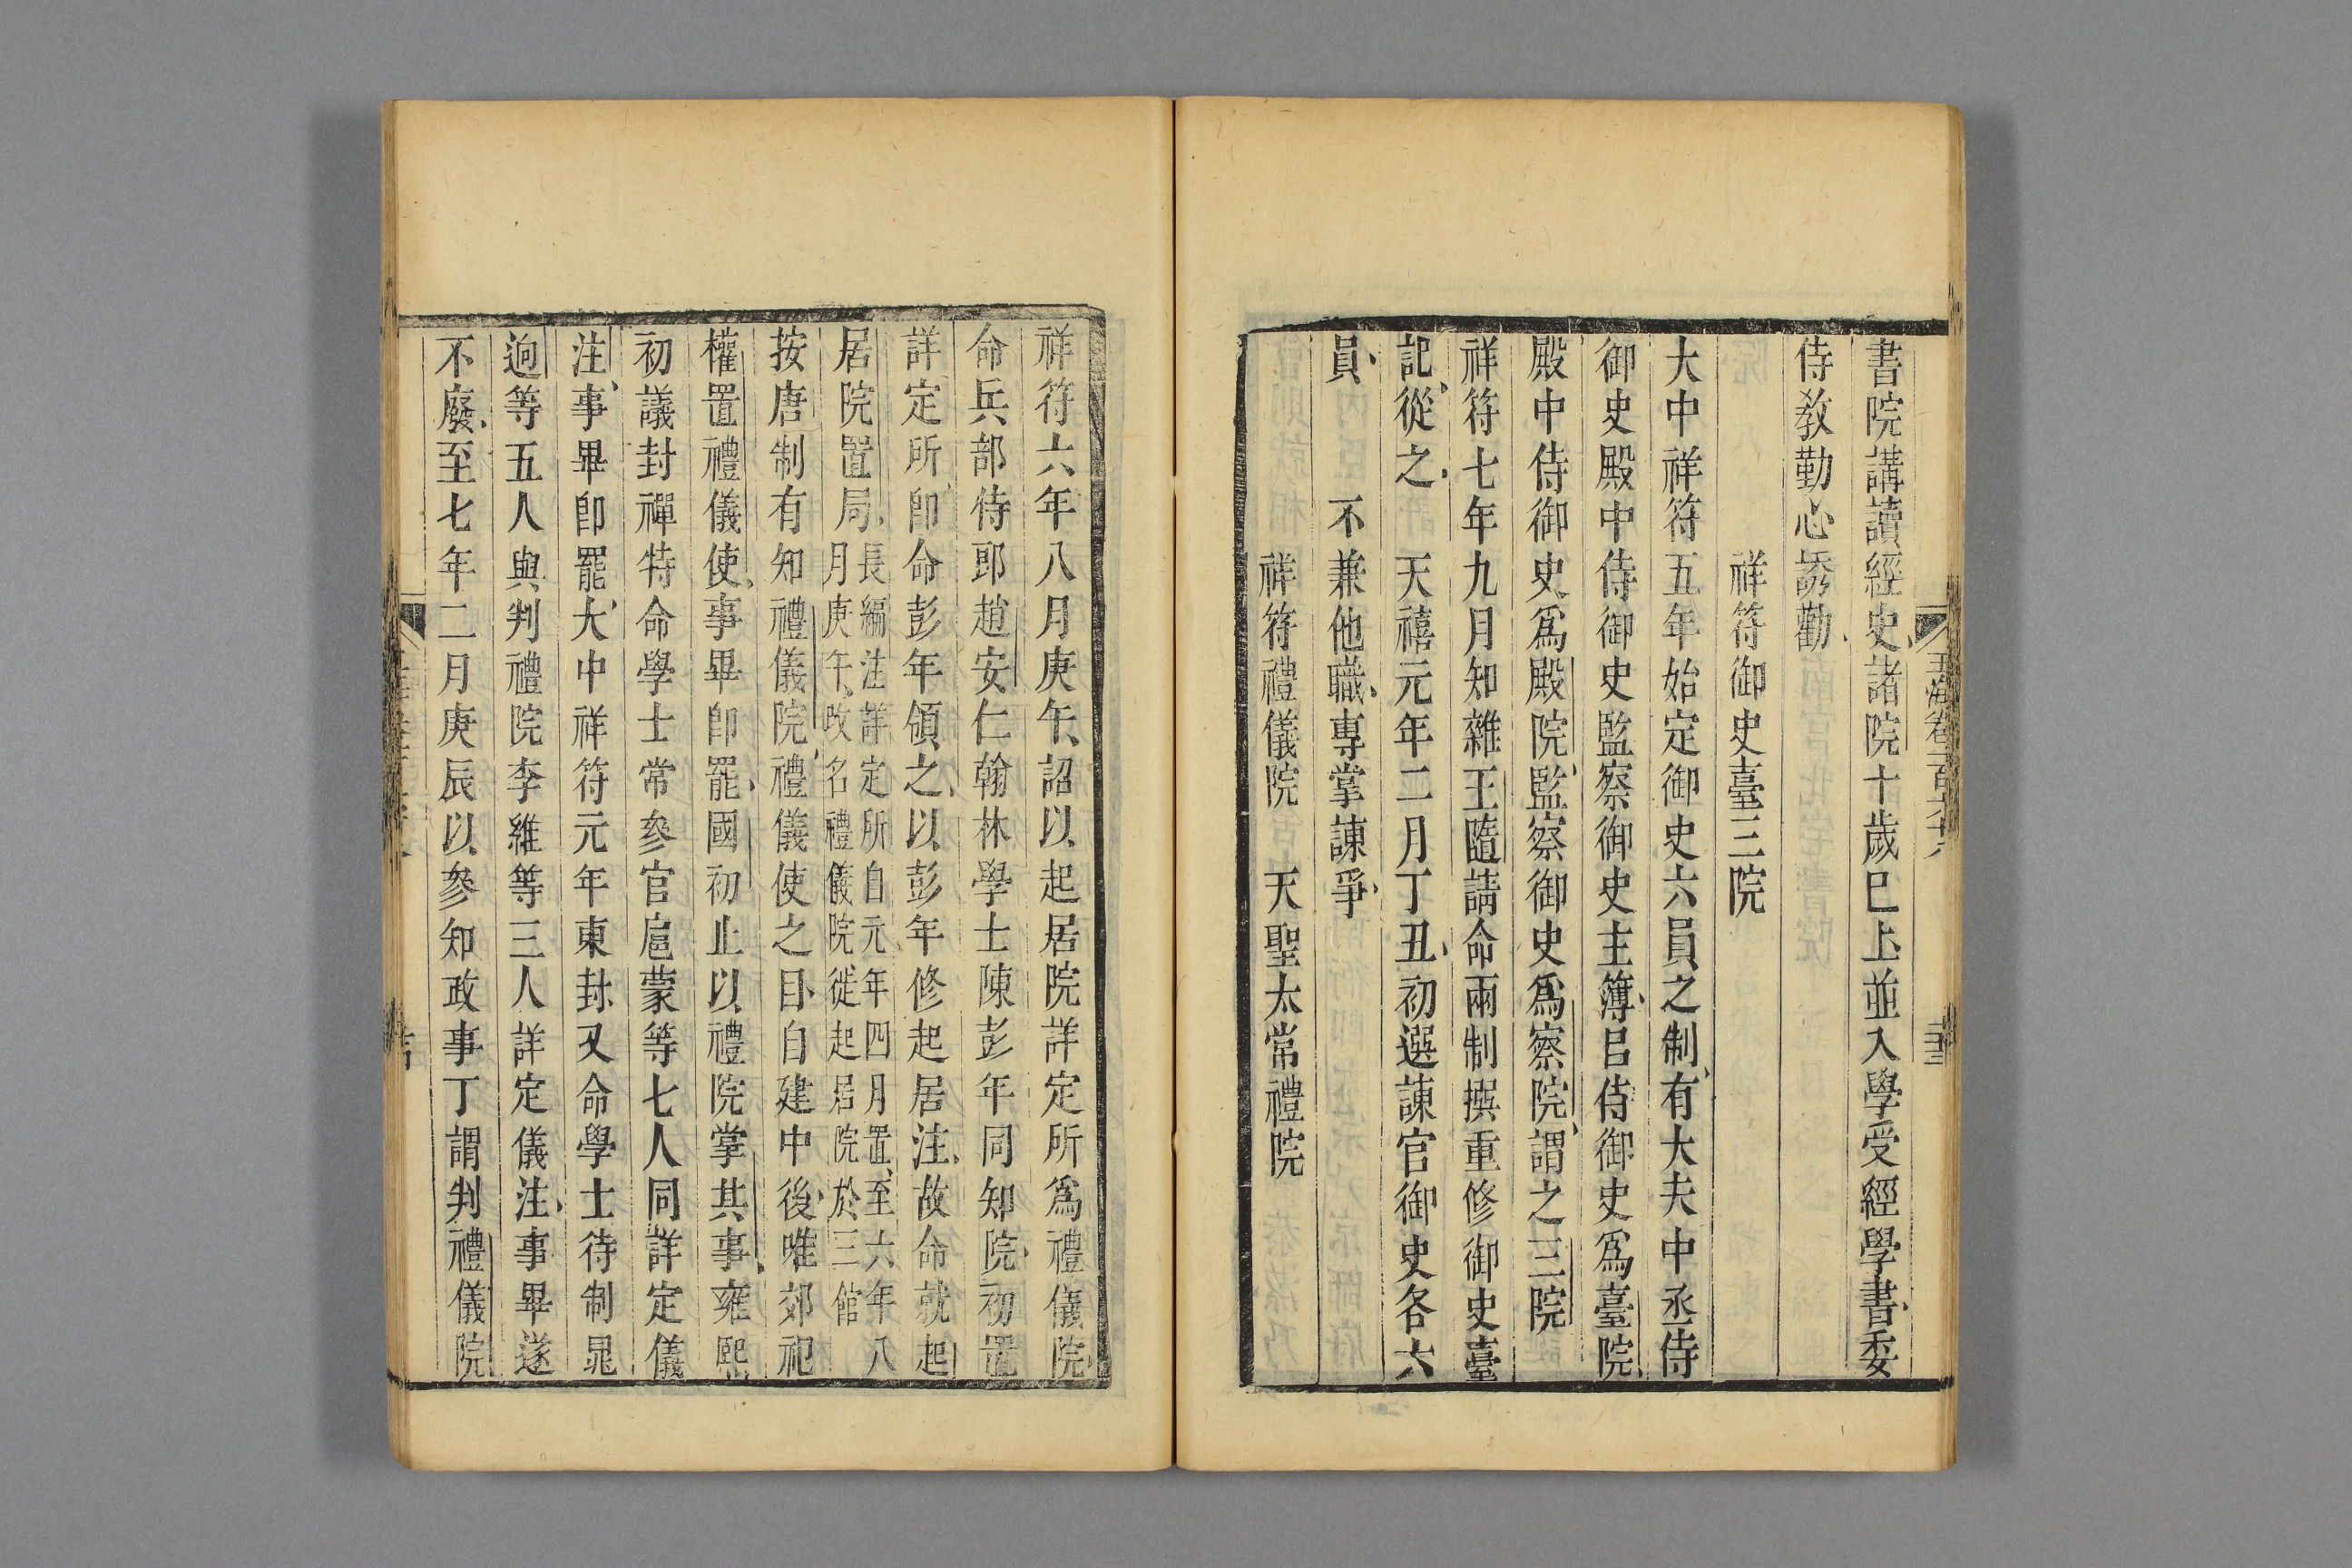 書院講讀經史諸院十歲巳上並入學受經學書委
侍教勤心誘勸
祥符御史臺三院
大中祥符五年始定御史六員之制有大夫中丞侍
御史殿中侍御史監察御史主簿㠯侍御史爲臺院
殿中侍御史爲殿院監察御史爲察院謂之三院
祥符七年九月知雜王隨請命兩制撰重修御史臺
記從之　天禧元年二月丁丑初選諫官御史各六
員　　不兼他職專掌諫爭
祥符禮儀院　天聖太常禮院
祥符六年八月庚午詔以起居院詳定所爲禮儀院
命兵部侍郎趙安仁翰林學士陳彭年同知院初置
詳定所卽命彭年領之以彭年修起居注故命就起
居院置局
長編注詳定所自元年四月置至六年八
月庚午改名禮儀院徙起居院於三館
按唐制有知禮儀院禮儀使之目自建中後唯郊祀
權置禮儀使事畢卽罷國初止以禮院掌其事雍熙
初議封禪特命學士常參官扈蒙等七人同詳定儀
注事畢卽罷大中祥符元年東封又命學士待制晁
逈等五人與判禮院李維等三人詳定儀注事畢遂
不廢至七年二月庚辰以參知政事丁謂判禮儀院